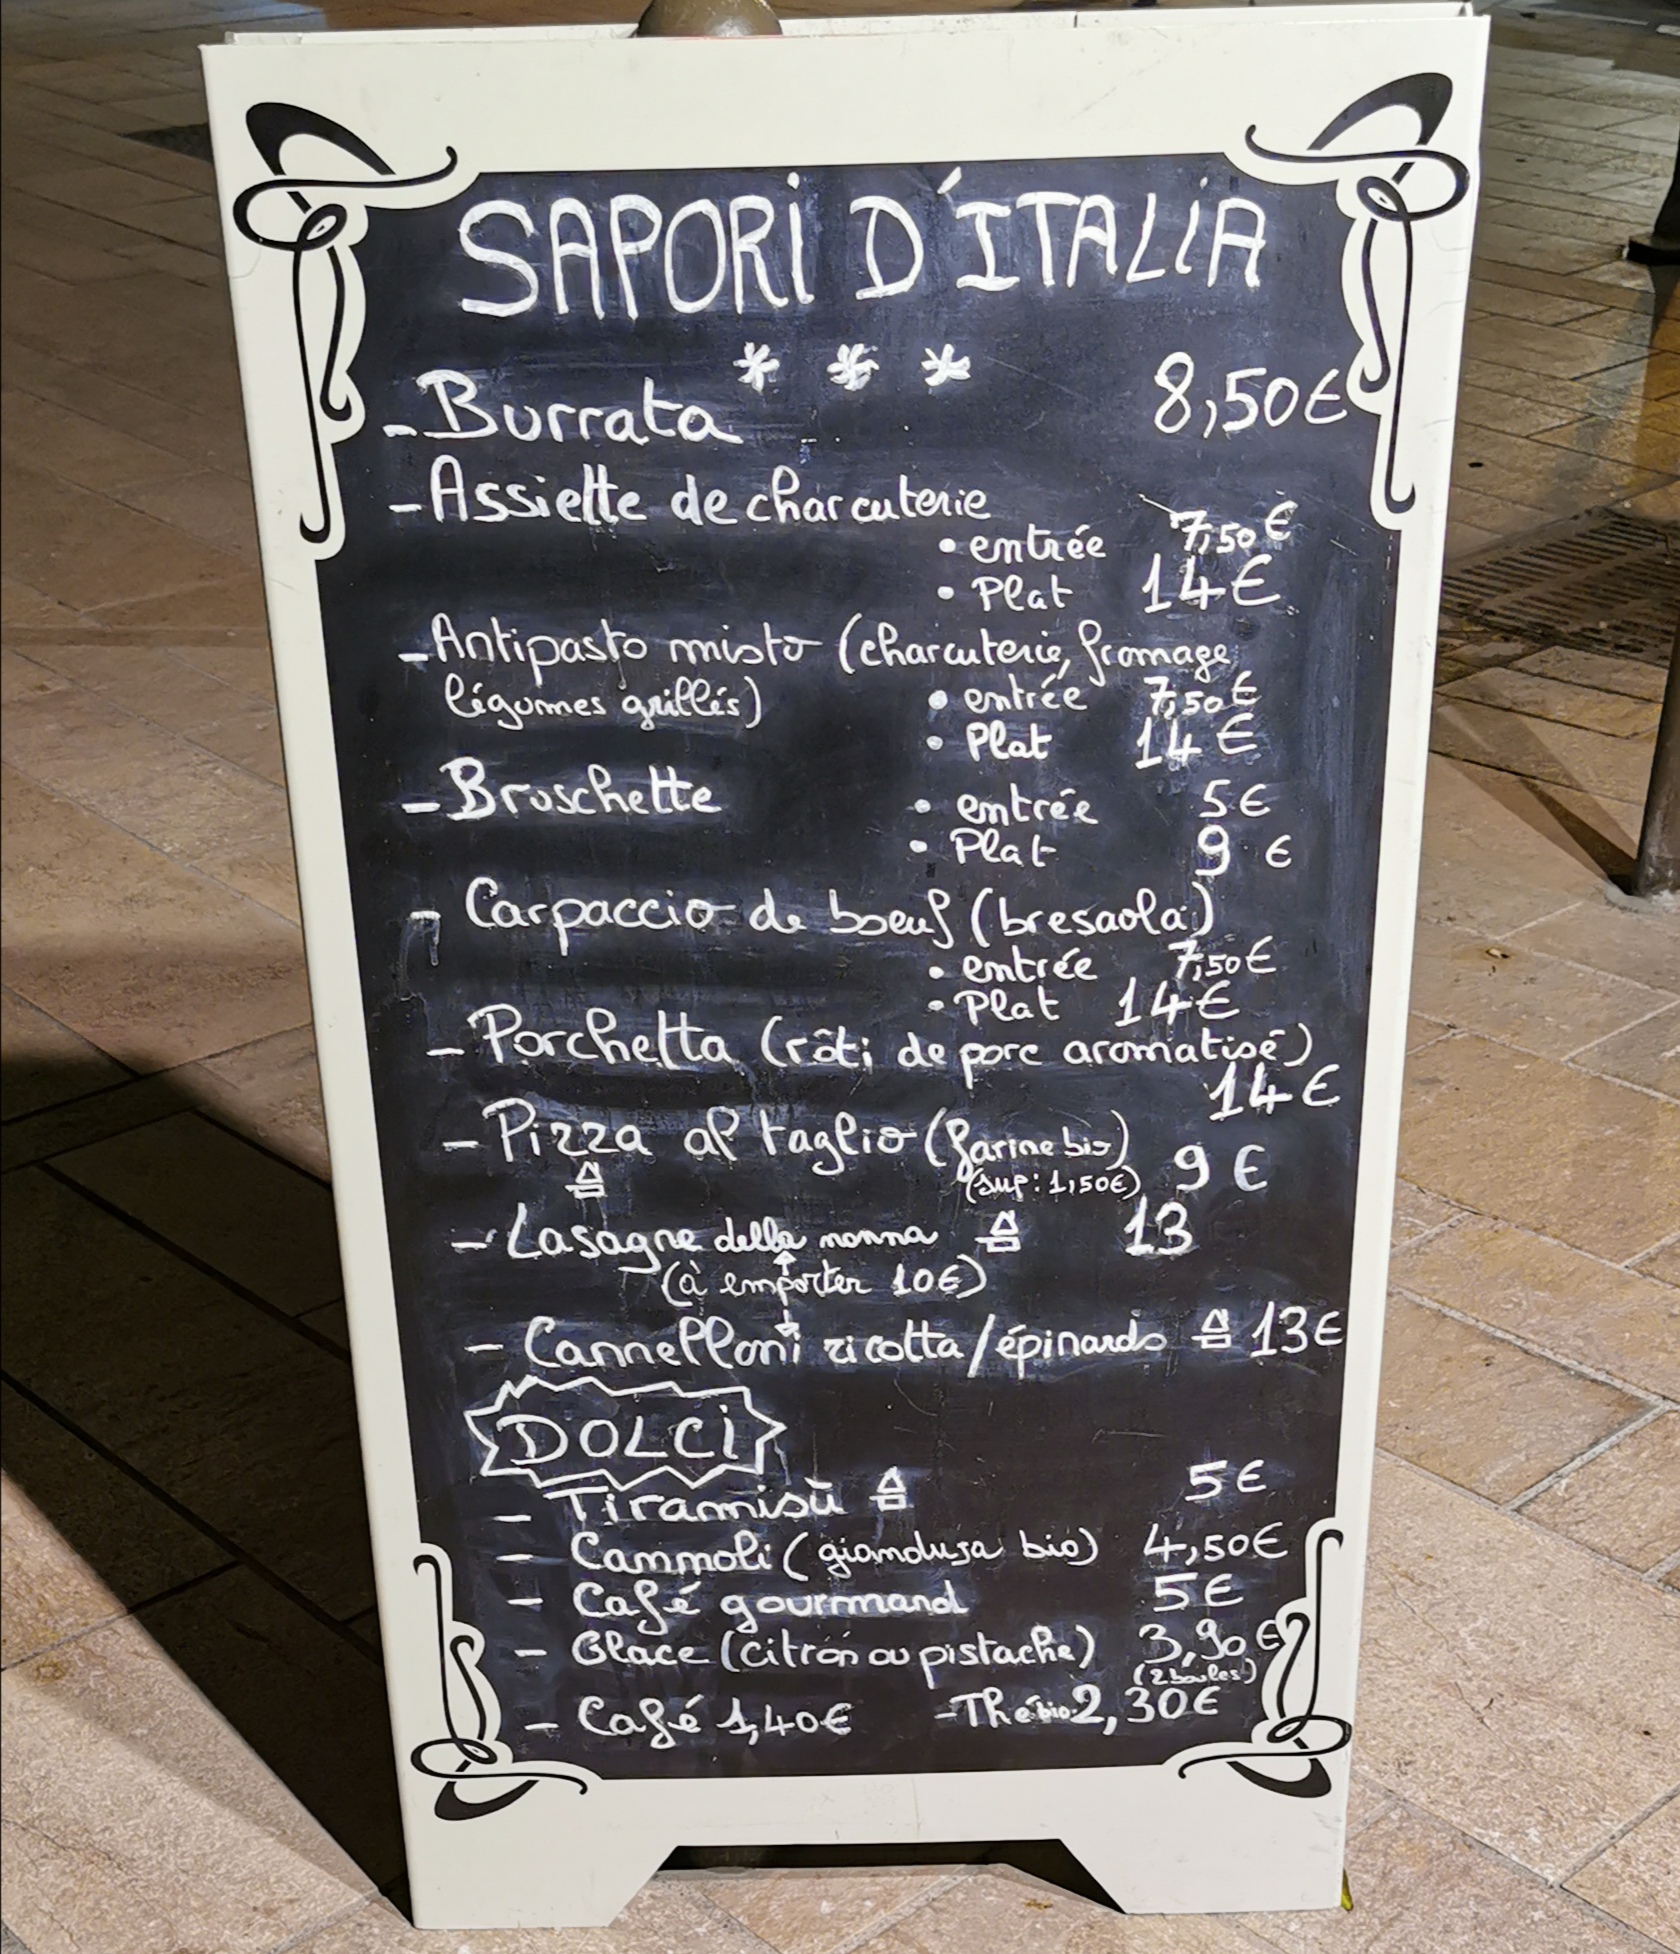 SAPORI D'ITALIA
* * *
- Burrata 8,50€
- Assiette de charcuterie
• entrée 7,50€
• Plat 14€
- Antipasto misto (charcuterie, fromage
légumes grillés) • entrée 7,50€
• Plat 14€
- Bruschette • entrée 5€
• Plat 9 €
- Carpaccio de boeuf (bresaola)
• entrée 7,50€
• Plat 14€
- Porchetta (rôti de porc aromatisé)
14€
- Pizza al taglio (farine bio) 9 €
(sup: 1,50€)
- Lasagne della nonna 13
(à emporter 10€)
- Cannelloni ricotta/épinards 13€
DOLCI
- Tiramisù 5€
- Cannoli (gianduja bio) 4,50€
- Café gourmand 5€
- Glace (citron ou pistache) 3,90€
(2 boules)
- Café 1,40€ - Thé bio 2,30€